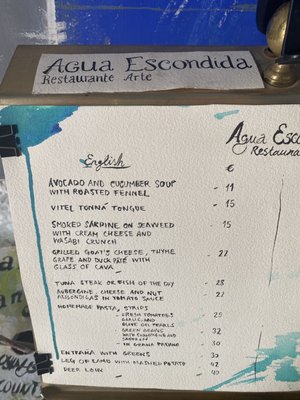 Agua Escondida
Restaurante Arte
Agua Esco
Restaura
English
€
Avocado and cucumber soup
with roasted fennel - 11
Vitel tonná tongue - 15
Smoked sardine on seaweed - 15
with cream cheese and
wasabi crunch
Grilled goat's cheese, thyme - 22
grape and duck pâté with
glass of cava
Tuna steak or fish of the day - 28
Aubergine, cheese and nut - 22
in tomato sauce
Homemade pasta, strips
- Fresh tomatoes - 29
garlic and
olive oil pearls
- Green 32
with
- 30
Entraña with greens - 30
Leg of lamb with mashed potato - 42
Deer loin - 40